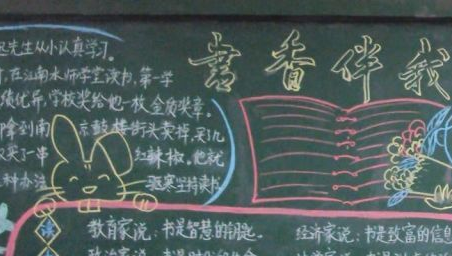 迅先生从小认真学习。
在江南水师学堂读书,第一学
绩优异,学校奖给他一枚金质奖章。
拿到南京鼓楼街头卖掉,买几
又买了一串红辣椒。他就
种办法驱寒坚持读书
书香伴我
读
教育家说:书是智慧的钥匙。
经济家说:书是致富的信息